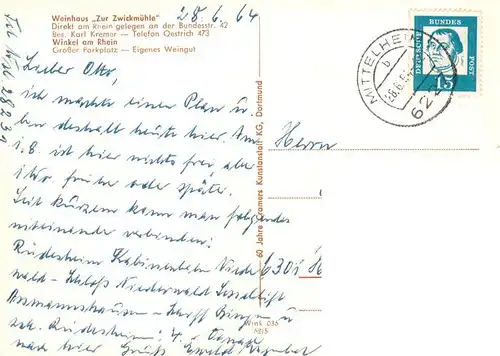 Weinhaus „Zur Zwickmühle“
Direkt am Rhein gelegen an der Bundesstr. 42
Bes. Karl Kremer — Telefon Oestrich 473
Winkel am Rhein
Großer Parkplatz — Eigenes Weingut
28.6.64
Lieber Otto,
ich machte einen Plan u.
bin deshalb heute hier. Am
1.8. ist hier nichts frei, aber
früher oder später.
Seit kurzem kann man folgendes
miteinander verbinden:
Rüdesheim Kabinenbahn Niederwald
wald - Schloß Niederwald Sessellift
Assmannshausen - Schiff Bingen u
zck. Rüdesheim: 4.-
war hier Gruß Ewald
60 Jahre Kramers Kunstanstalt KG, Dortmund
Wink 036
Herrn
6301
MITTELHEIM
b
622
DEUTSCHE
BUNDES
POST
15